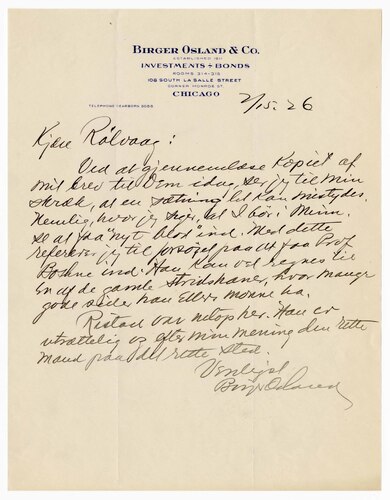 BIRGER OSLAND & CO.
ESTABLISHED 1911
INVESTMENTS ÷ BONDS
ROOMS 314-318
108 SOUTH LA SALLE STREET
CORNER MONROE ST
CHICAGO
TELEPHONE DEARBORN
2/15.26
Kjære Rölvaag:
Ved at gjennemlæse Kopiet af
mit brev til Dem idag, ser jeg til min
skræk, at en sætning let kan mistydes.
Nemlig, hvor jeg siger, at I bör i Minn.
se at faa "nyt blod" ind. Med dette
refererer jeg til forsöget paa at faa Prof
ind. Han kan vel regnes til
En af de gamle Stridshaner, hvor mange
gode sider han ellers monne ha.
Ristad var netop her. Han er
utrættelig og efter min mening den rette
mand paa det rette sted.
Venligst
Birger Osland